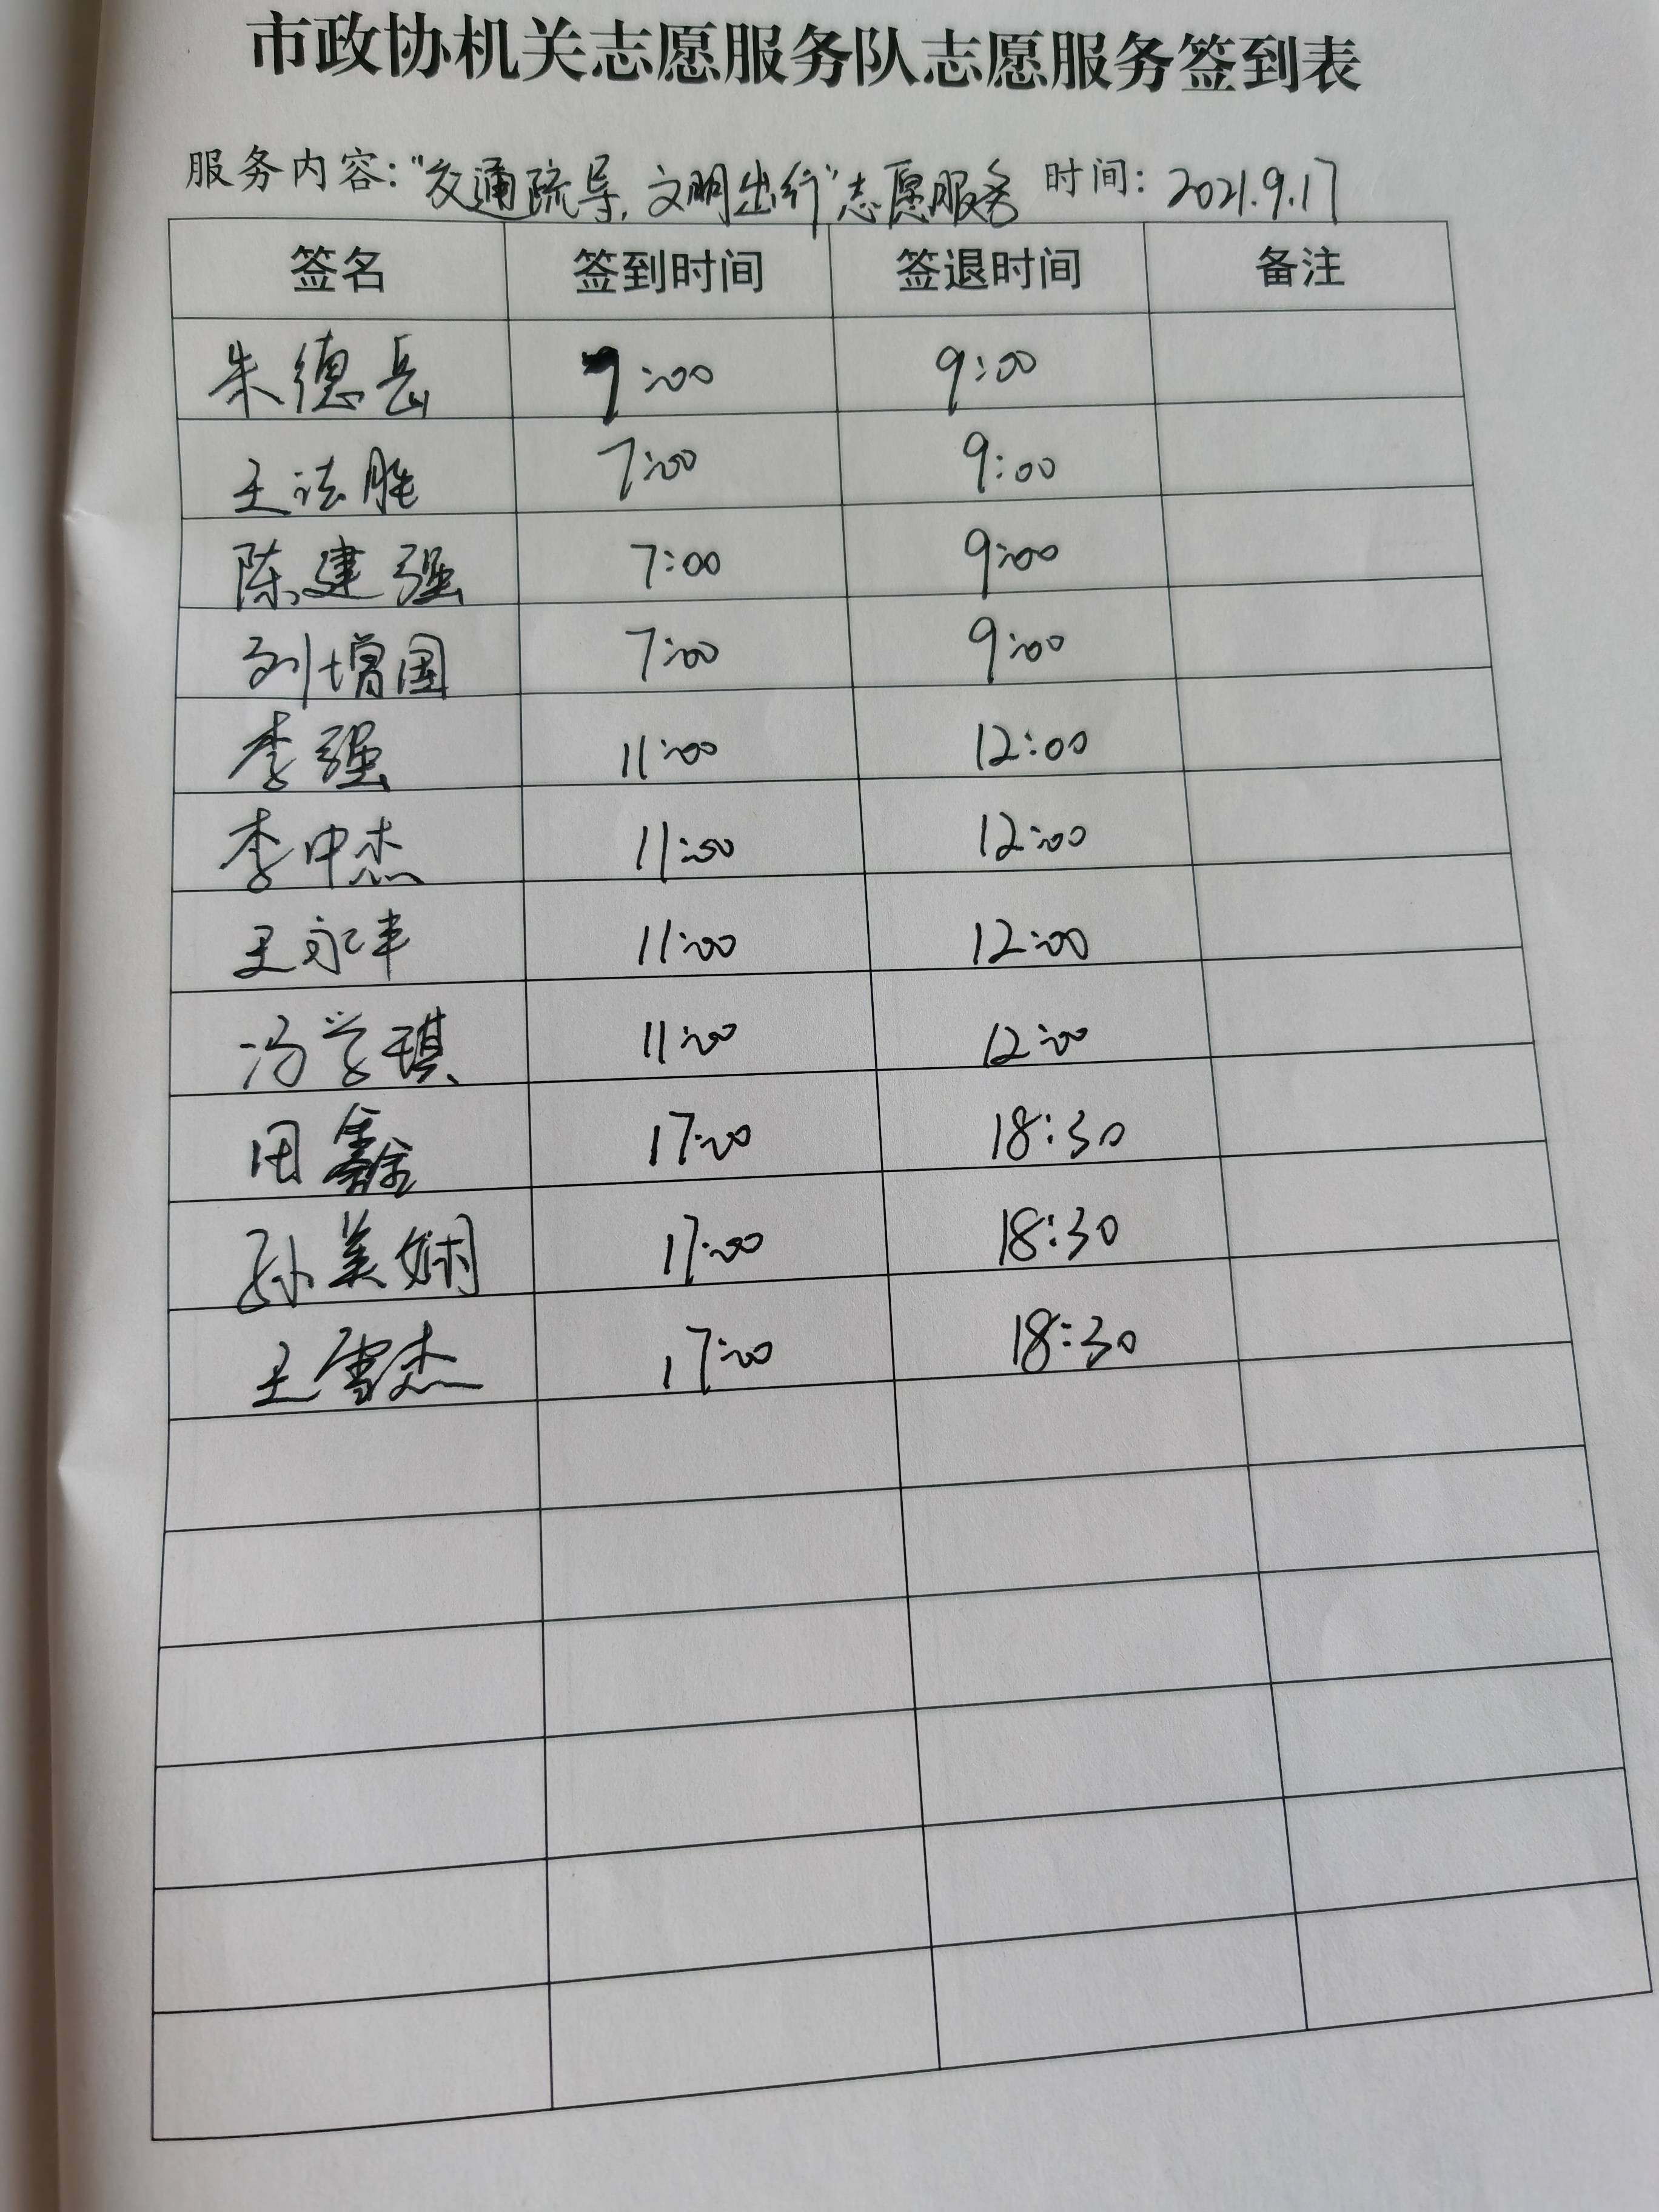 市政协机关志愿服务队志愿服务签到表
服务内容："交通疏导，文明出行"志愿服务 时间：2021.9.17
签名 签到时间 签退时间 备注
朱德岳 7:00 9:00
王法胜 7:00 9:00
陈建强 7:00 9:00
刘增国 7:00 9:00
李强 11:00 12:00
李中杰 11:00 12:00
王永丰 11:00 12:00
冯学琪 11:00 12:00
田鑫 17:00 18:30
孙美娴 17:00 18:30
王雪杰 17:00 18:30